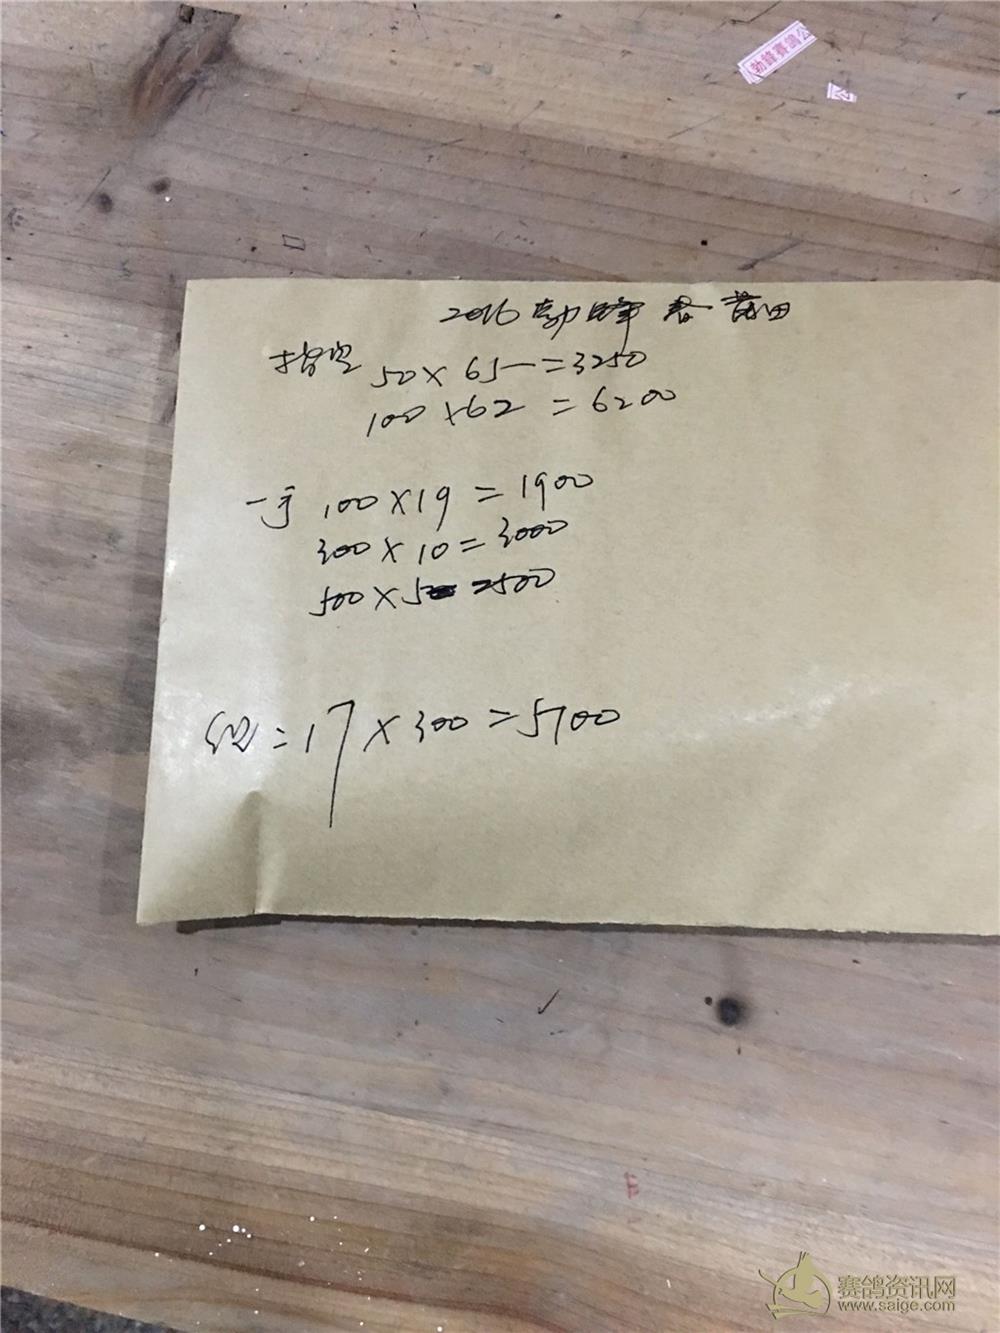 勃鋒賽鴿公
2016 勃峰 春 莆田
指定 50×65=3250
100×62=6200
一字 100×19=1900
300×10=3000
500×5=2500
=17×300=5700
赛鸽资讯网
www.saige.com